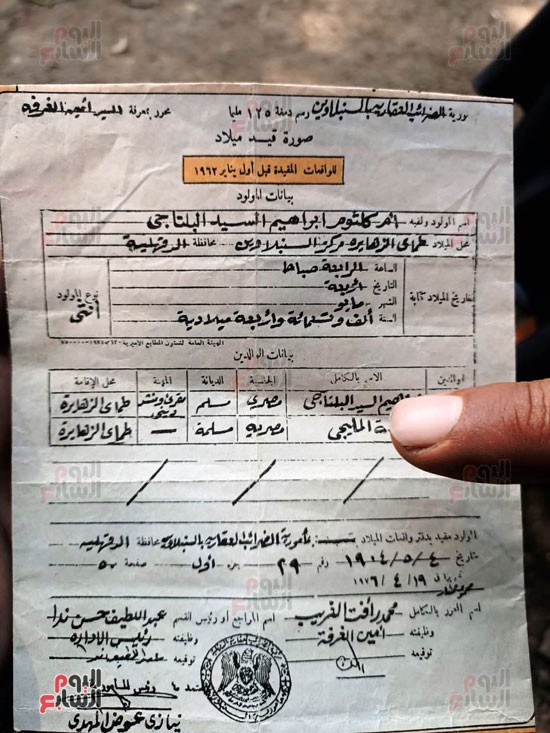 مأمورية الضرائب العقارية بالسنبلاوين رسم دمغة ١٢٥ مليما محرر بمعرفة السيد أمين الغرفة
صورة قيد ميلاد
للواقعات المقيدة قبل أول يناير ١٩٦٢
بيانات المولود
اسم المولود ولقبه أم كلثوم ابراهيم السيد البلتاجى
محل الميلاد طماى الزهايرة مركز السنبلاوين محافظة الدقهلية
تاريخ الميلاد كتابة
الساعة الرابعة صباحا
التاريخ أربعة
الشهر مايو
السنة ألف وتسعمائة وأربعة ميلادية
نوع المولود أنثى
الهيئة العامة لشئون المطابع الأميرية
بيانات الوالدين
الوالدين الاسم بالكامل الجنسية الديانة المهنة محل الإقامة
السيد البلتاجى مصرى مسلم مقرئ ومنشد دينى طماى الزهايرة
المليجى مصرية مسلمة — طماى الزهايرة
المولود مقيد بدفتر واقعات الميلاد مأمورية الضرائب العقارية بالسنبلاوين محافظة الدقهلية
بتاريخ ١٩٠٤/٥/٤ رقم ٢٩ جزء أول صفحة ٥٠
١٩٧٦/٤/١٩
اسم المحرر بالكامل محمد رأفت الغريب
وظيفته أمين الغرفة
توقيعه
اسم المراجع أو رئيس القسم عبد اللطيف حسن ندا
وظيفته رئيس الادارة
توقيعه
رئيس المأمورية
نيازى عوض المهدى
اليوم السابع